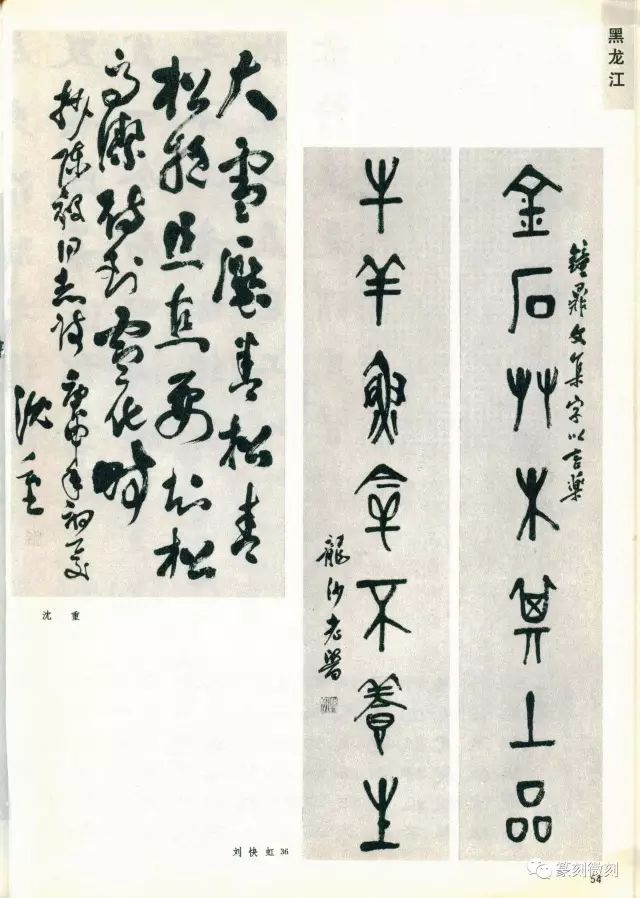 黑龙江
大雪壓青松青
松挺且直要知松
高潔待到雪化時
抄陳毅同志詩 庚申年初夏
沈重
沈 重
金石艸木其上品
鐘鼎文集字以言藥
牛羊魚 不養生
龍沙老醫
刘快虹 36
篆刻微刻
54